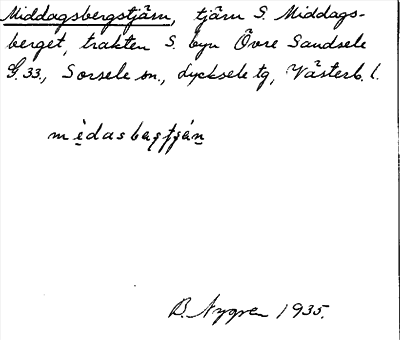 Middagsbergstjärn, tjärn S. Middags-
berget, trakten S. byn Övre Sandsele
G. 33., Sorsele sn., Lycksele tg, Västerb. l.
B. Nygren 1935.